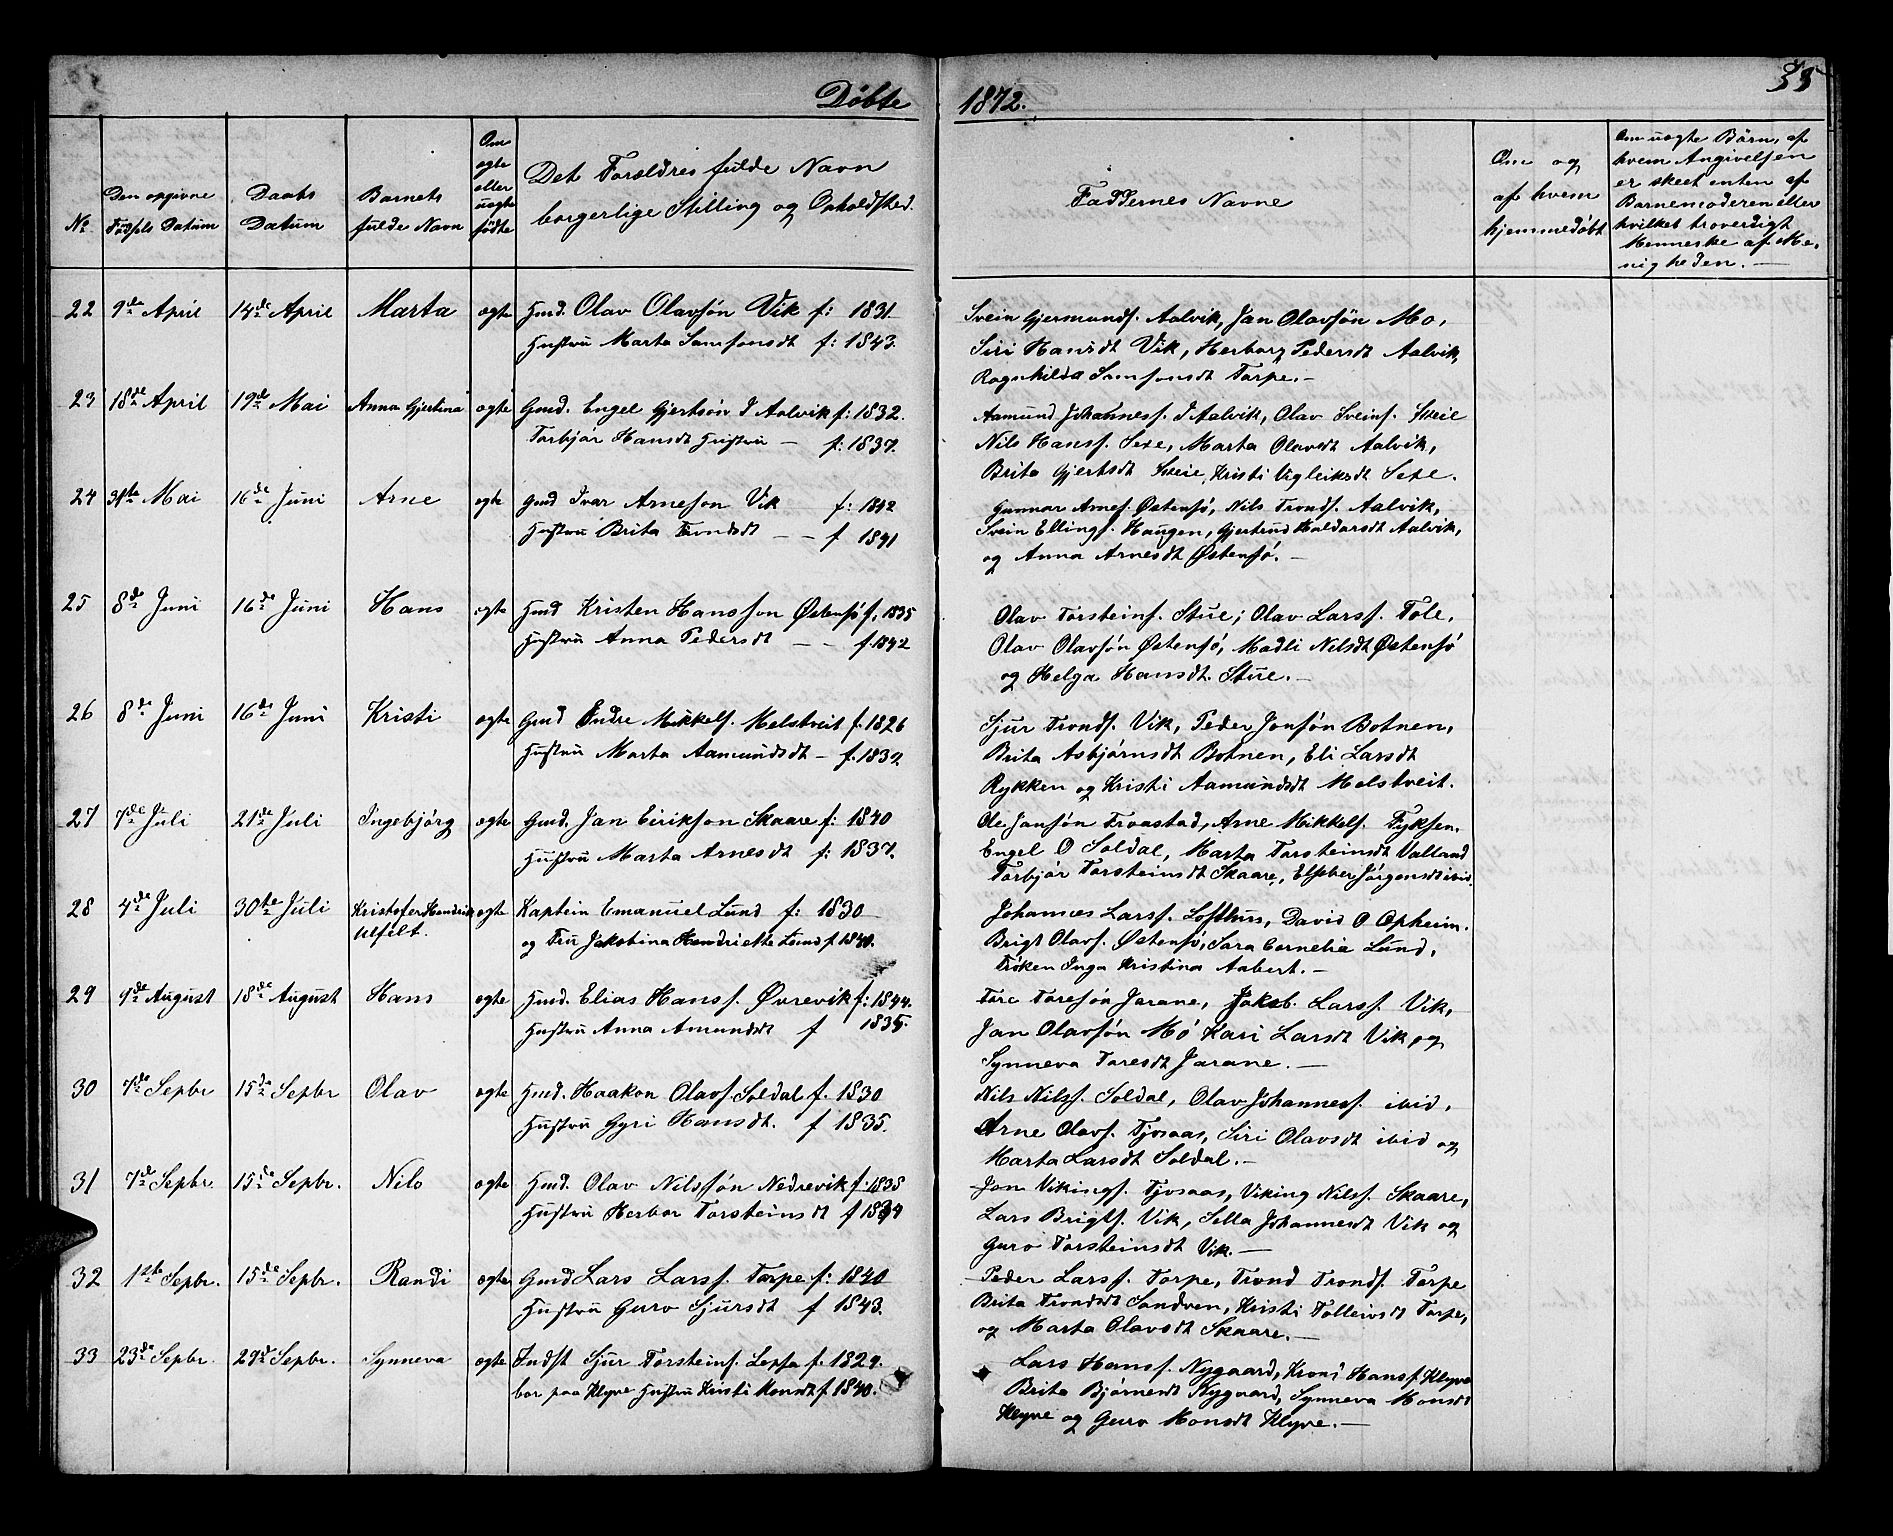 Døbte 1872.
33
No
Den opgivne Fødsels Datum
Daabs Datum
Barnets fulde Navn
Om ægte eller uægte fødte
Det Forældres fulde Navn borgerlige Stilling og Opholdsted.
Faddernes Navne
Om og af hvem hjemmedøbt
Om uægte Børn, af hvem Angivelsen er skeet enten af Barnemoderen eller hvilket troverdigt Menneske af Menigheden.
22 9de April 14de April Marta ægte Gmd. Olav Olavsøn Vik f: 1831
Hustru Marta Samsonsdt f: 1843.
Svein Gjermunds. Aalvik, Jan Olavsøn Mo,
Siri Hansdt Vik, Herborg Pedersdt Aalvik,
Ragnhilda Samsonsdt Torpe.
23 18de April 19de Mai Anna Gjertina ægte Gmd. Engel Gjertsøn I Aalvik f: 1832.
Torbjør Hansdt Hustru f: 1837.
Aamund Johanness. I Aalvik, Olav Sveins. Steie
Nils Hanss. Sexe, Marta Olavsdt Aalvik,
Brita Gjertsdt Steie, Kristi Vigleiksdt Sexe.
24 31te Mai 16de Juni Arne ægte Gmd Ivar Arneson Vik f: 1842
Hustru Brita Trondsdt f 1841
Gunnar Arnes. Østensø, Nils Tronds. Aalvik,
Svein Ellings. Haugen, Gjertrud Haldorsdt Aalvik,
og Anna Arnesdt Østensø.
25 8de Juni 16de Juni Hans ægte Gmd Kristen Hansson Østensø f. 1835
Hustru Anna Pedersdt f. 1842
Olav Torsteins. Stue; Olav Larss. Tole,
Olav Olavsøn Østensø, Madli Nilsdt Østensø
og Helga Hansdt. Stue.
26 8de Juni 16de Juni Kristi ægte Gmd Endre Mikkels. Melstveit f. 1826
Hustru Marta Aamundsdt f. 1832
Sjur Tronds. Vik, Peder Jonsøn Botnen,
Brita Asbjørnsdt Botnen, Eli Larsdt
Rykken og Kristi Aamundsdt Melstveit.
27 7de Juli 21de Juli Ingebjørg ægte Gmd. Jan Eirikson Skaare f: 1840
Hustru Marta Arnesdt f: 1837.
Ole Jansøn Traastad, Arne Mikkels. Fyksen,
Engel O Soldal, Marta Torsteinsdt Valland
Torbjør Torsteinsdt Skaare, Elsber Jørgensdt ibid.
28 4de Juli 30te Juli Kristofer Hendrik Ulfelt. ægte Kaptein Emanuel Lund f: 1830
og Fru Jakobina Hendriette Lund f 1840.
Johannes Larss. Lofthus, David O Opheim.
Brigt Olavs. Østensø, Sara Cornelia Lund,
Frøken Inga Kristina Aabert.
29 9de August 18de August Hans ægte Gmd. Elias Hanss. Øvrevik f: 1844.
Hustru Anna Amundsdt f 1835.
Tore Toresøn Jarane, Jakob. Larss. Vik,
Jan Olavsøn Mo Kari Larsdt Vik, og
Synneva Toresdt Jarane.
30 7de Sepbr 15de Sepbr Olav ægte Gmd. Haakon Olavs. Soldal f. 1830
Hustru Gyri Hansdt. f 1835.
Nils Nilss. Soldal, Olav Johanness. ibid,
Arne Olavs. Tjosaas, Siri Olavsdt ibid og
Marta Larsdt Soldal.
31 7de Sepbr. 15de Sepbr. Nils ægte Gmd. Olav Nilssøn Nedrevik f. 1838
Hustru Herbor Torsteinsdt f 1834
Jan Vikings. Tjosaas, Viking Nilss. Skaare,
Lars Brigts. Vik, Sella Johannesdt Vik og
Guro Torsteinsdt Vik.
32 1ste Sepbr. 15de Sepbr. Randi ægte Gmd Lars Larss. Torpe f: 1840
Hustru Guro Sjursdt f 1843.
Peder Larss. Torpe, Trond Tronds. Torpe
Brita Trondsdt Sandven, Kristi Tolleivsdt Torpe,
og Marta Olavsdt Skaare.
33 23de Sepbr. 29de Sepbr. Synneva ægte Indst Sjur Torsteins. Lepsa f. 1829.
bor paa Klyve Hustru Kristi Monsdt f 1840.
Lars Hanss. Nygaard, Hanss. Klyve
Brita Bjørnesdt Nygaard, Synneva Monsdt
Klyve og Guro Monsdt Klyve.